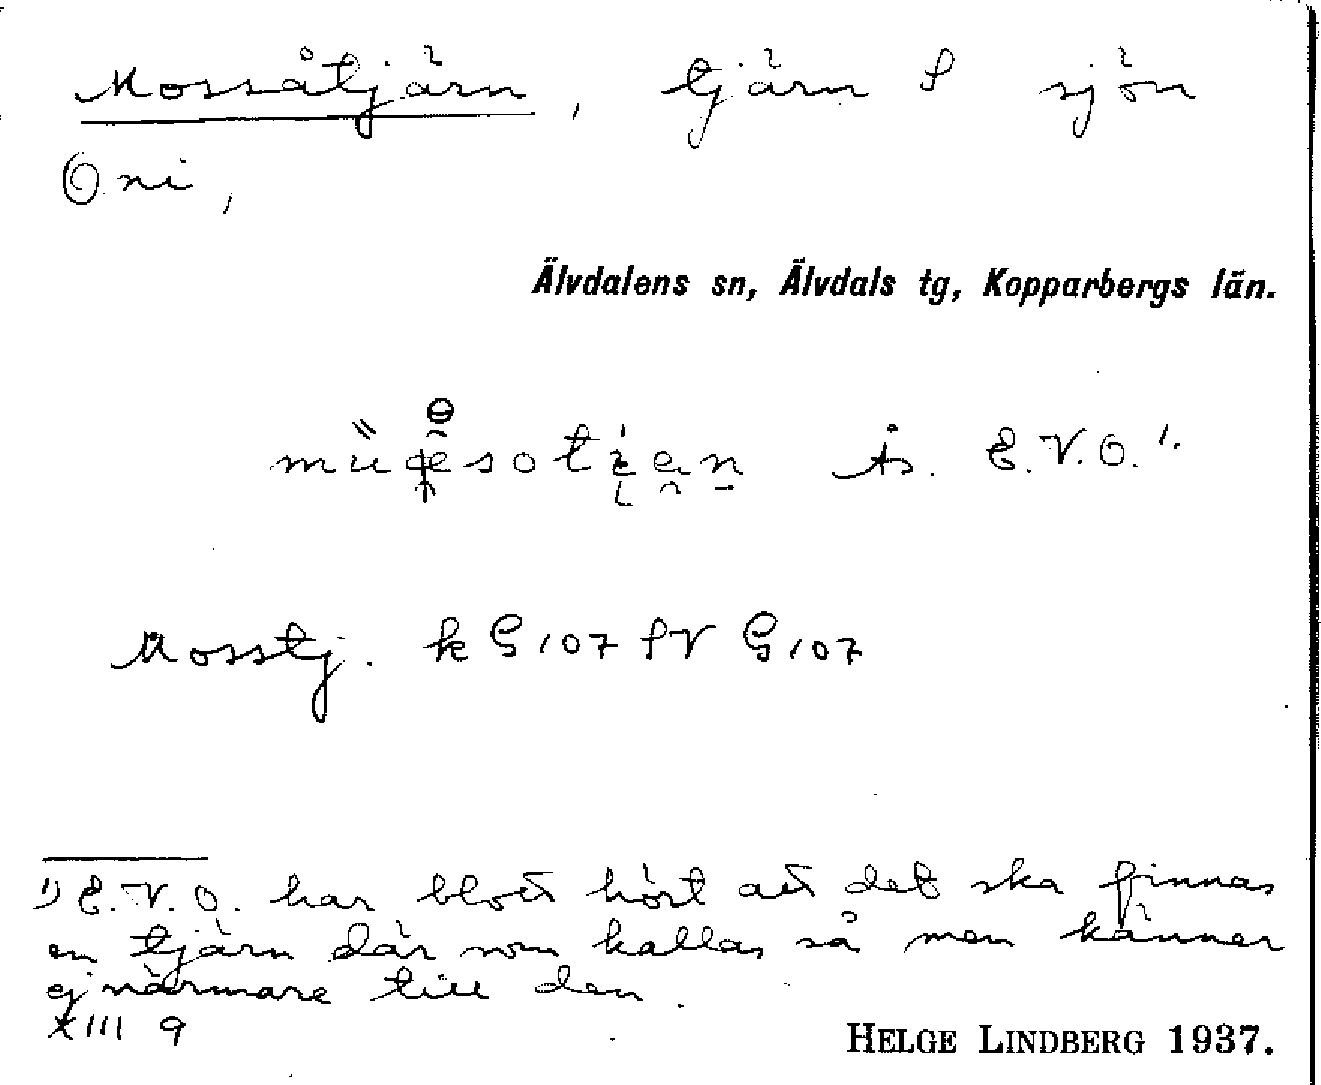 Mossåtjärn, tjärn S sjön
Oni,
Älvdalens sn, Älvdals tg, Kopparbergs län.
Ås. E.V.O.¹⁾
Mosstj. k G107 SV G107
1) E.V.O. har blott hört att det ska finnas
en tjärn där som kallas så men känner
ej närmare till den.
XIII 9
HELGE LINDBERG 1937.